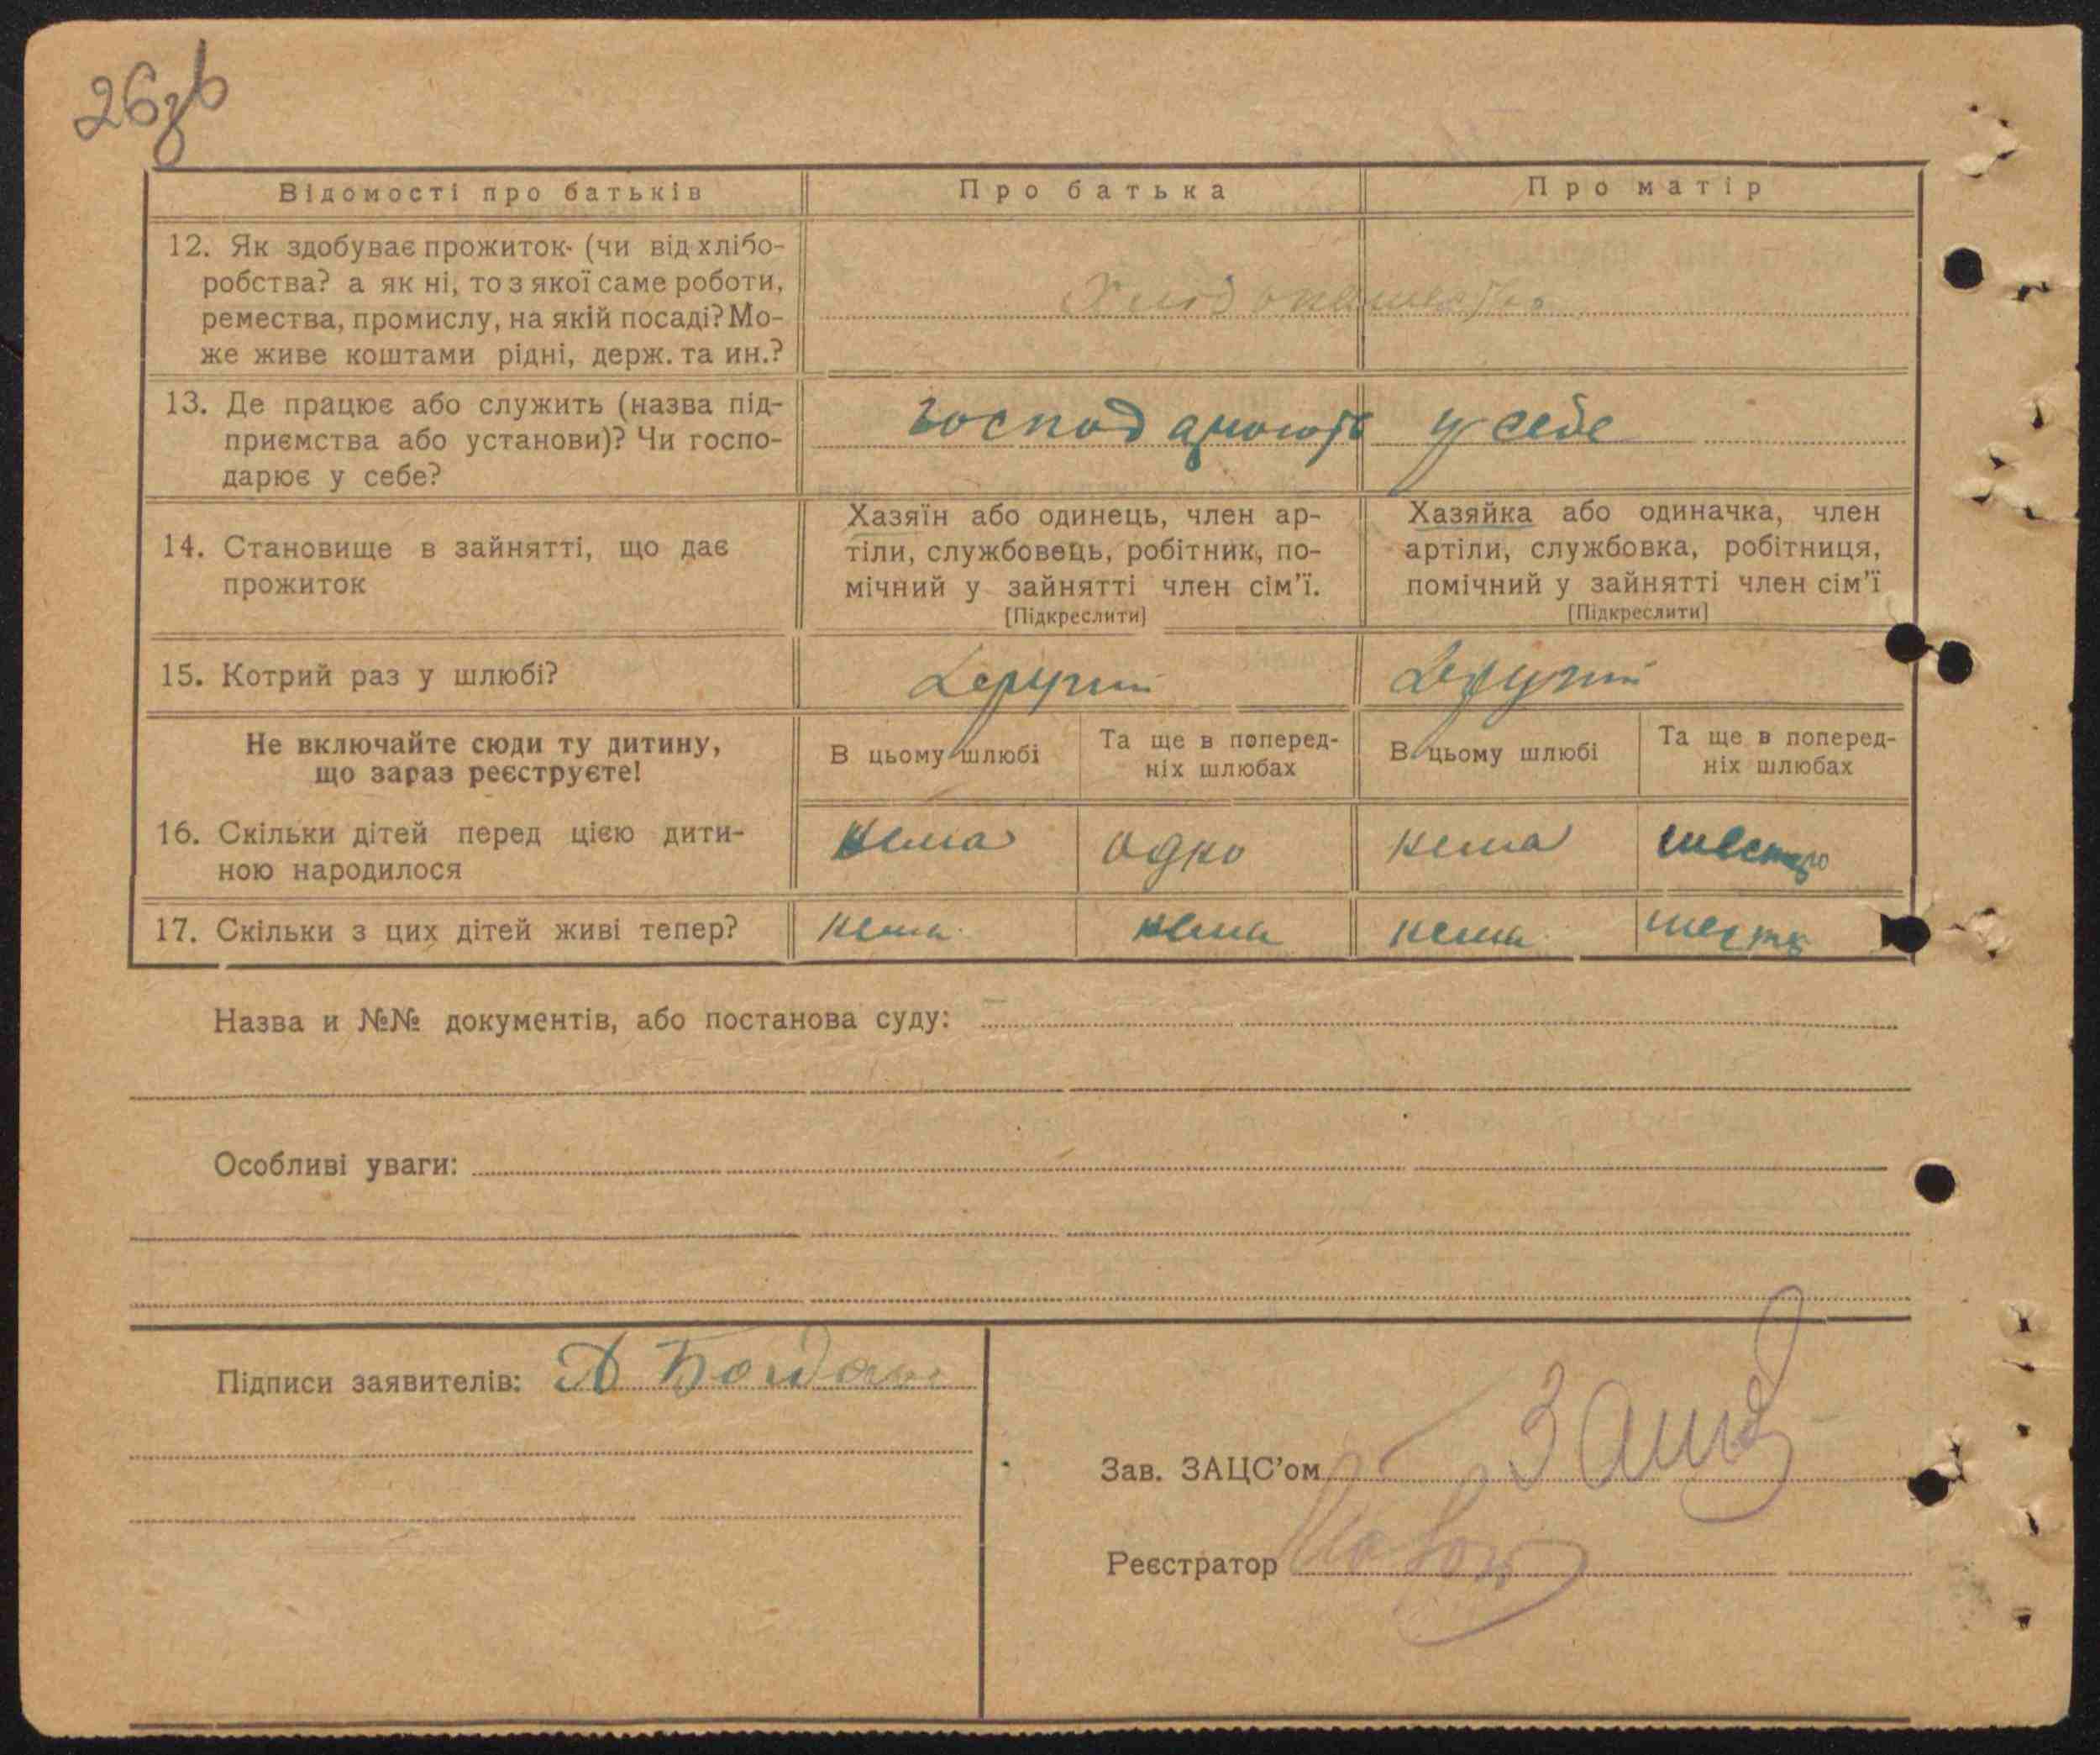 26зв
Відомості про батьків
Про батька
Про матір
12. Як здобуває прожиток (чи від хлібо-
робства? а як ні, то з якої саме роботи,
ремества, промислу, на якій посаді? Мо-
же живе коштами рідні, держ. та ин.?
13. Де працює або служить (назва під-
приємства або установи)? Чи госпо-
дарює у себе?
господарюють у себе
14. Становище в зайнятті, що дає
прожиток
Хазяїн або одинець, член ар-
тіли, службовець, робітник, по-
мічний у зайнятті член сім'ї.
[Підкреслити]
Хазяйка або одиначка, член
артіли, службовка, робітниця,
помічний у зайнятті член сім'ї
[Підкреслити]
15. Котрий раз у шлюбі?
Другий
Другий
Не включайте сюди ту дитину,
що зараз реєструєте!
В цьому шлюбі
Та ще в поперед-
ніх шлюбах
В цьому шлюбі
Та ще в поперед-
ніх шлюбах
16. Скільки дітей перед цією дити-
ною народилося
нема
одно
нема
шестеро
17. Скільки з цих дітей живі тепер?
нема
нема
нема
шесть
Назва и №№ документів, або постанова суду:
Особливі уваги:
Підписи заявителів:
Зав. ЗАЦС'ом
Реєстратор